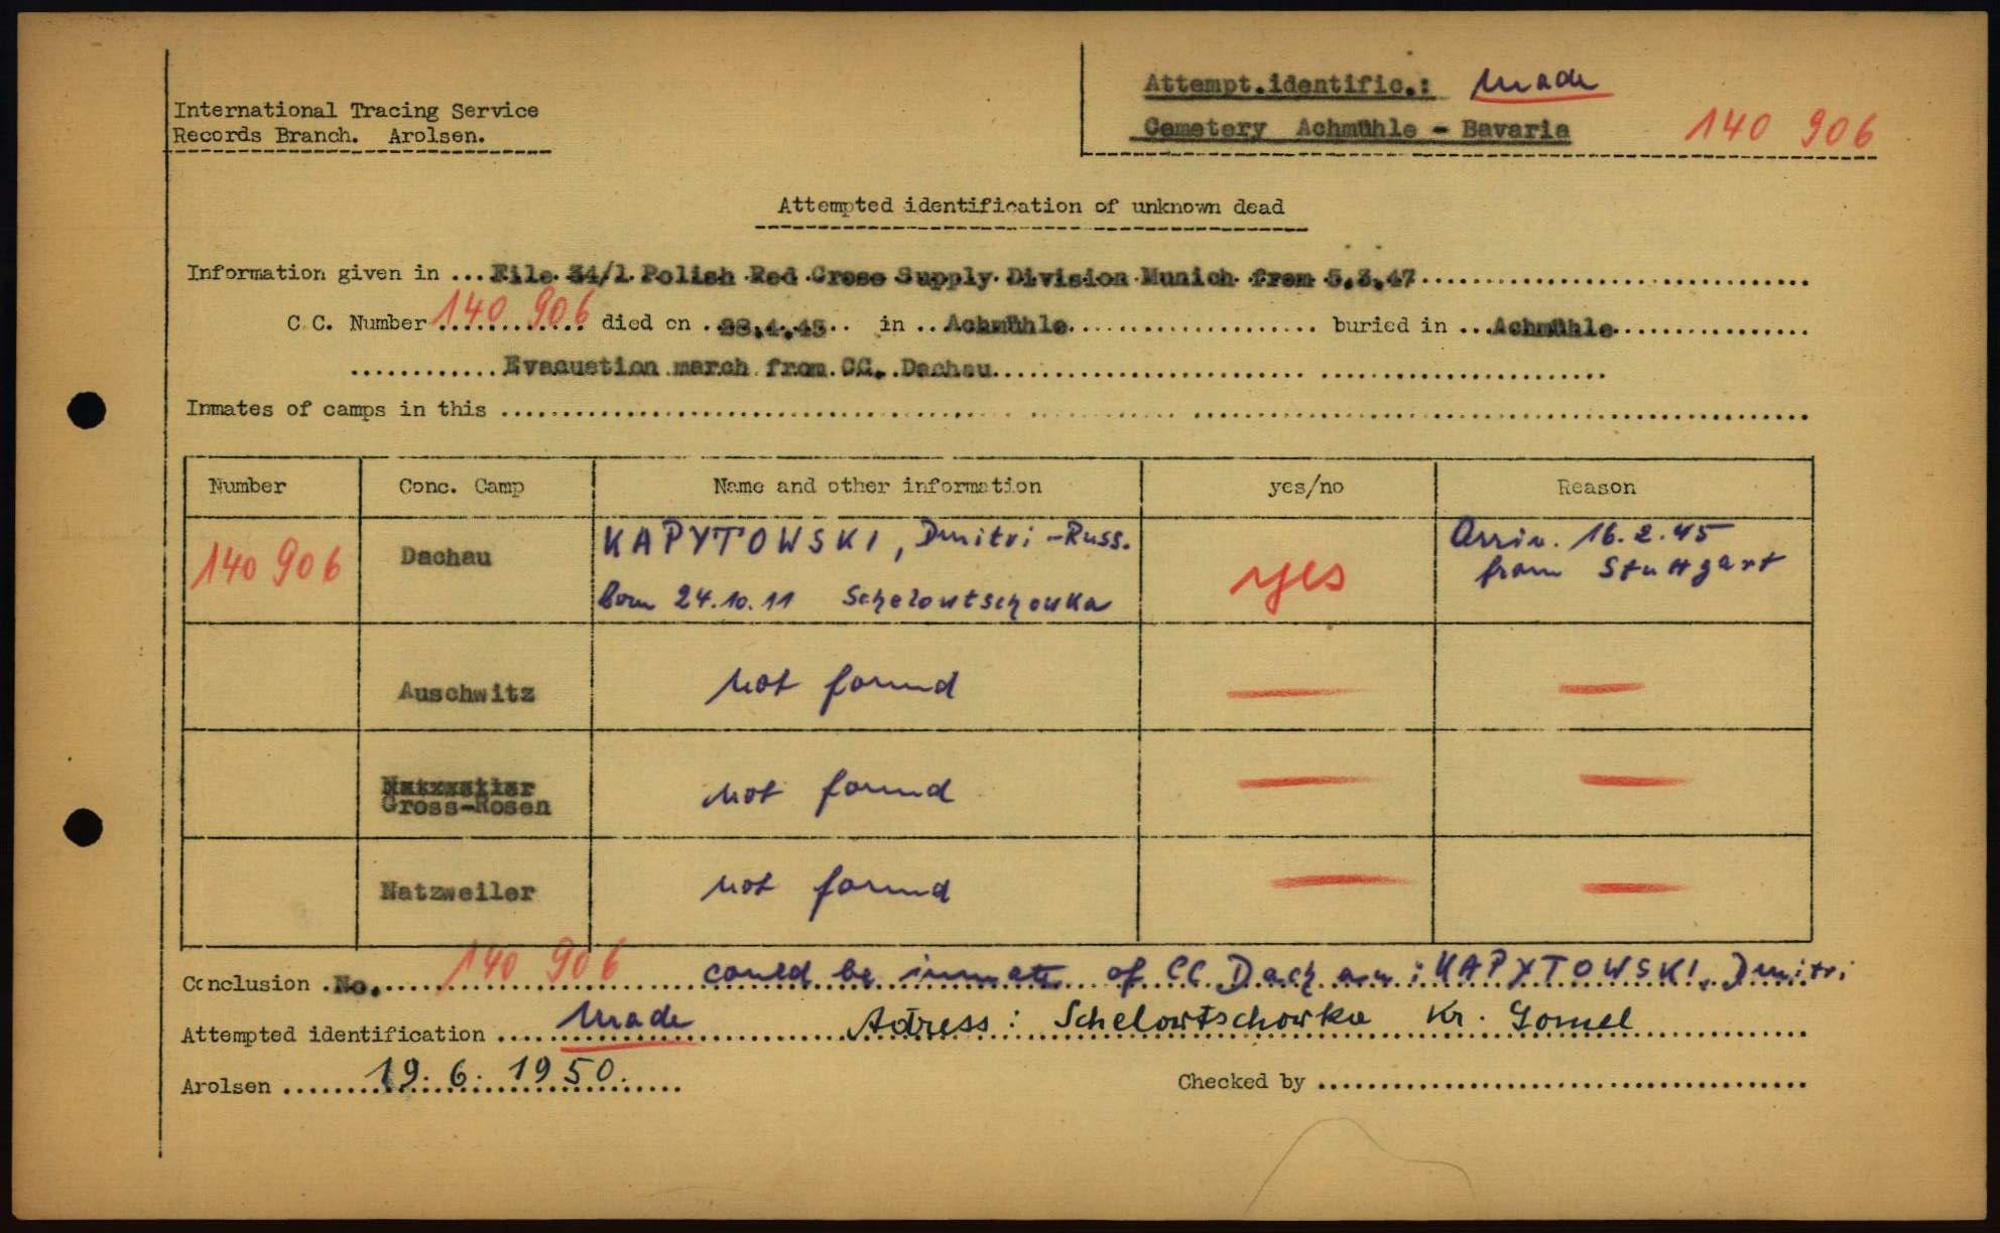 Attempt.identific.: made
International Tracing Service
Records Branch. Arolsen.
Cemetery Achmühle - Bavaria 140 906
Attempted identification of unknown dead
Information given in ... File 34/1 Polish Red Cross Supply Division Munich from 5.3.47
C.C. Number 140 906 died on .28.4.45.. in ..Achmühle buried in ...Achmühle
Evacuetion march from CC. Dachau
Inmates of camps in this
Number Conc. Camp Name and other information yes/no Reason
140 906 Dachau KAPYTOWSKI, Dmitri - Russ. yes Arriv. 16.2.45
born 24.10.11 Schelowtschowka from Stuttgart
Auschwitz not found — —
Natzweiler
Gross-Rosen not found — —
Natzweiler not found — —
Conclusion .No. 140 906 could be inmate of CC Dachau: KAPYTOWSKI, Dmitri
Attempted identification made Adress: Schelowtschowka Kr. Gomel
Arolsen 19. 6. 1950. Checked by